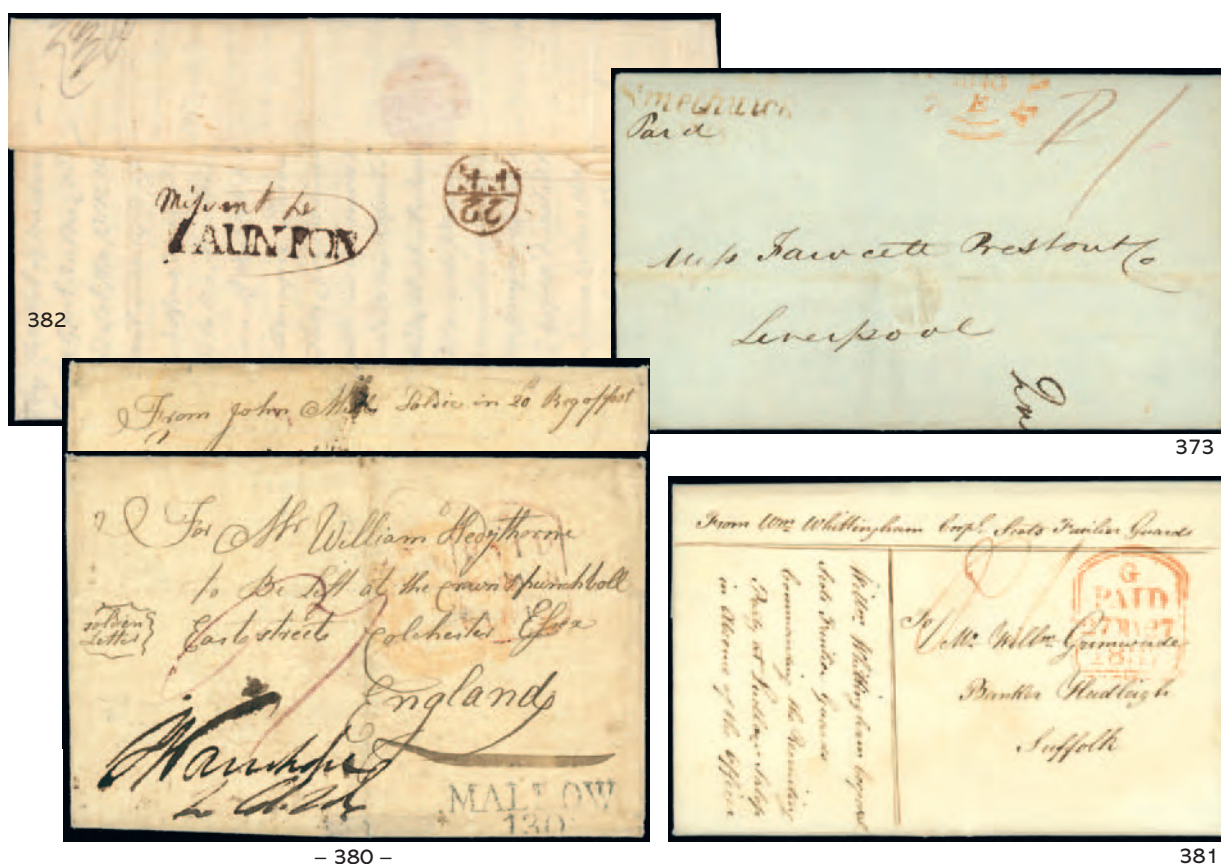 Missent to
TAUNTON
22
382
Smethwick
Paid
E
P 1/
Mess Fawcett Preston & Co
Liverpool
373
From John Soldier in 20 Reg of foot
For Mr William
to Be Left at the crown & punchboll
Colchester Essex
England
soldiers
Letter
MALLOW
130
– 380 –
From Wm Whittingham Corpl Scots Fusilier Guards
Willm Whittingham Corporal
Scots Fusilier Guards
Commanding the Recruiting
Party at Salop
in Absence of the Officer
G
PAID
27 MY 27
18
To
Mr Willm Grimwade
Banker Hadleigh
Suffolk
381